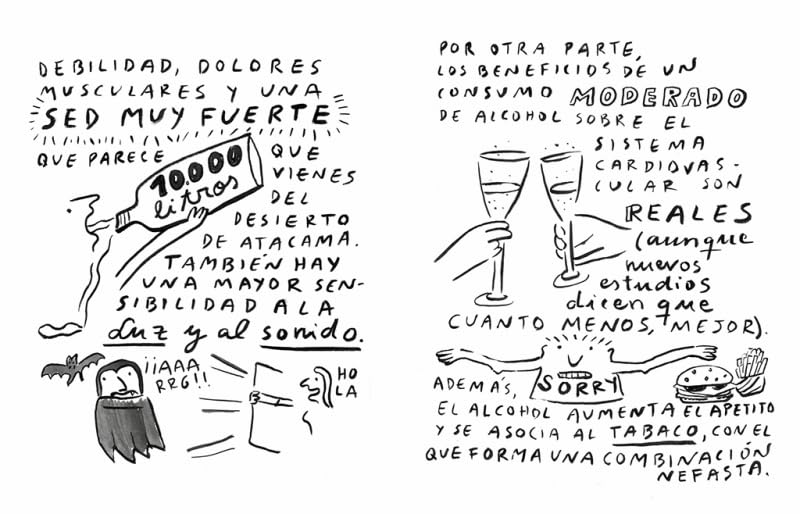 DEBILIDAD, DOLORES
MUSCULARES Y UNA
SED MUY FUERTE
QUE PARECE
10.000
litros
QUE
VIENES
DEL
DESIERTO
DE ATACAMA.
TAMBIÉN HAY
UNA MAYOR SEN-
SIBILIDAD A LA
Luz y al sonido.
¡¡AAA
RRG!!
HO
LA
POR OTRA PARTE,
LOS BENEFICIOS DE UN
CONSUMO MODERADO
DE ALCOHOL SOBRE EL
SISTEMA
CARDIOVAS-
CULAR SON
REALES
(aunque
nuevos
estudios
dicen que
CUANTO MENOS, MEJOR).
SORRY
ADEMÁS,
EL ALCOHOL AUMENTA EL APETITO
Y SE ASOCIA AL TABACO, CON EL
QUE FORMA UNA COMBINACIÓN
NEFASTA.